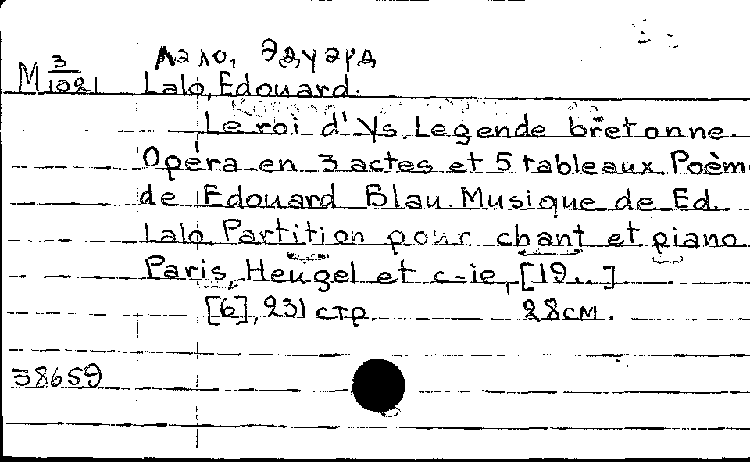 Лало, Эдуард
M 3/1021 Lalo, Edouard.
Le roi d'Ys. Legende bretonne.
Opéra en 3 actes et 5 tableaux. Poèm
de Edouard Blau. Musique de Ed.
Lalo. Partition pour chant et piano
Paris, Heugel et c-ie, [19..]
[6], 231 стр. 28 см.
38659